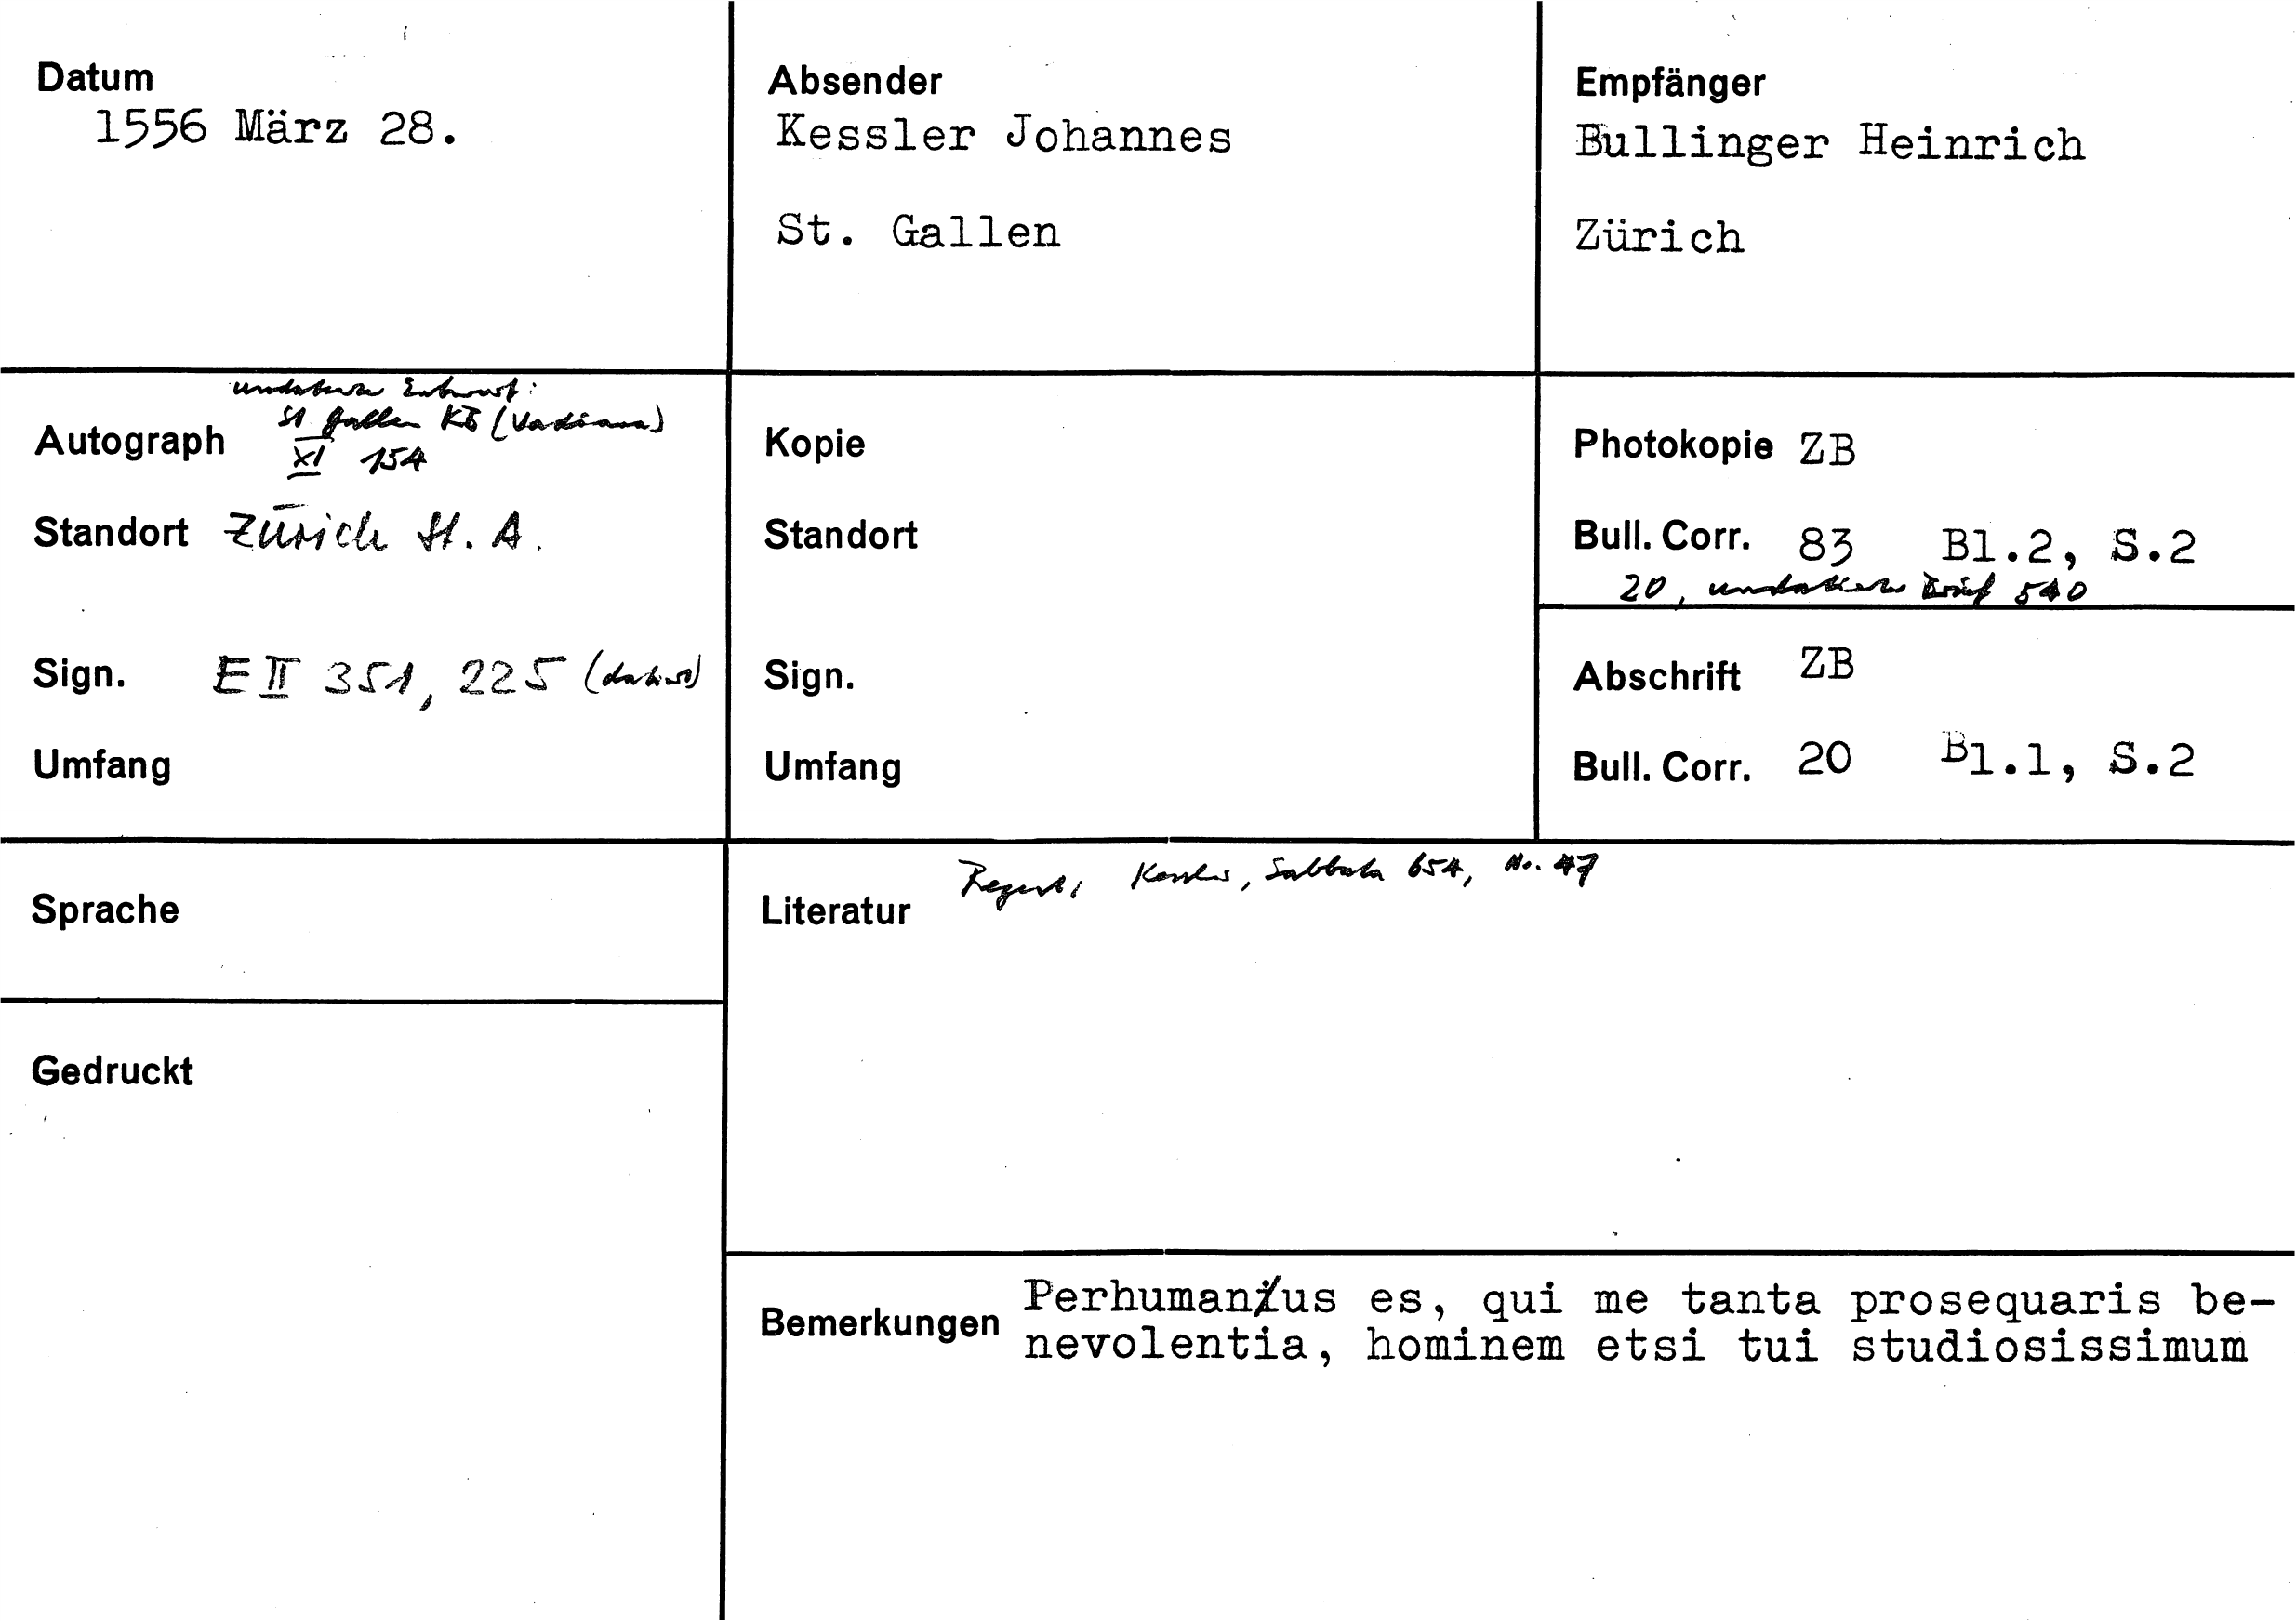 Datum
1556 März 28.
Absender
Kessler Johannes
St. Gallen
Empfänger
Bullinger Heinrich
Zürich
undatierter Entwurf:
St Gallen KB (Vadiana)
Autograph XI 154
Standort Zürich St. A.
Sign. E II 351, 225 (datiert)
Umfang
Kopie
Standort
Sign.
Umfang
Photokopie ZB
Bull. Corr. 83 Bl.2, S.2
20, undatierter Brief 540
Abschrift ZB
Bull. Corr. 20 Bl.1, S.2
Sprache
Gedruckt
Regest: Kessler, Sabbata 654, No. 47
Literatur
Bemerkungen Perhumanus es, qui me tanta prosequaris be-
nevolentia, hominem etsi tui studiosissimum